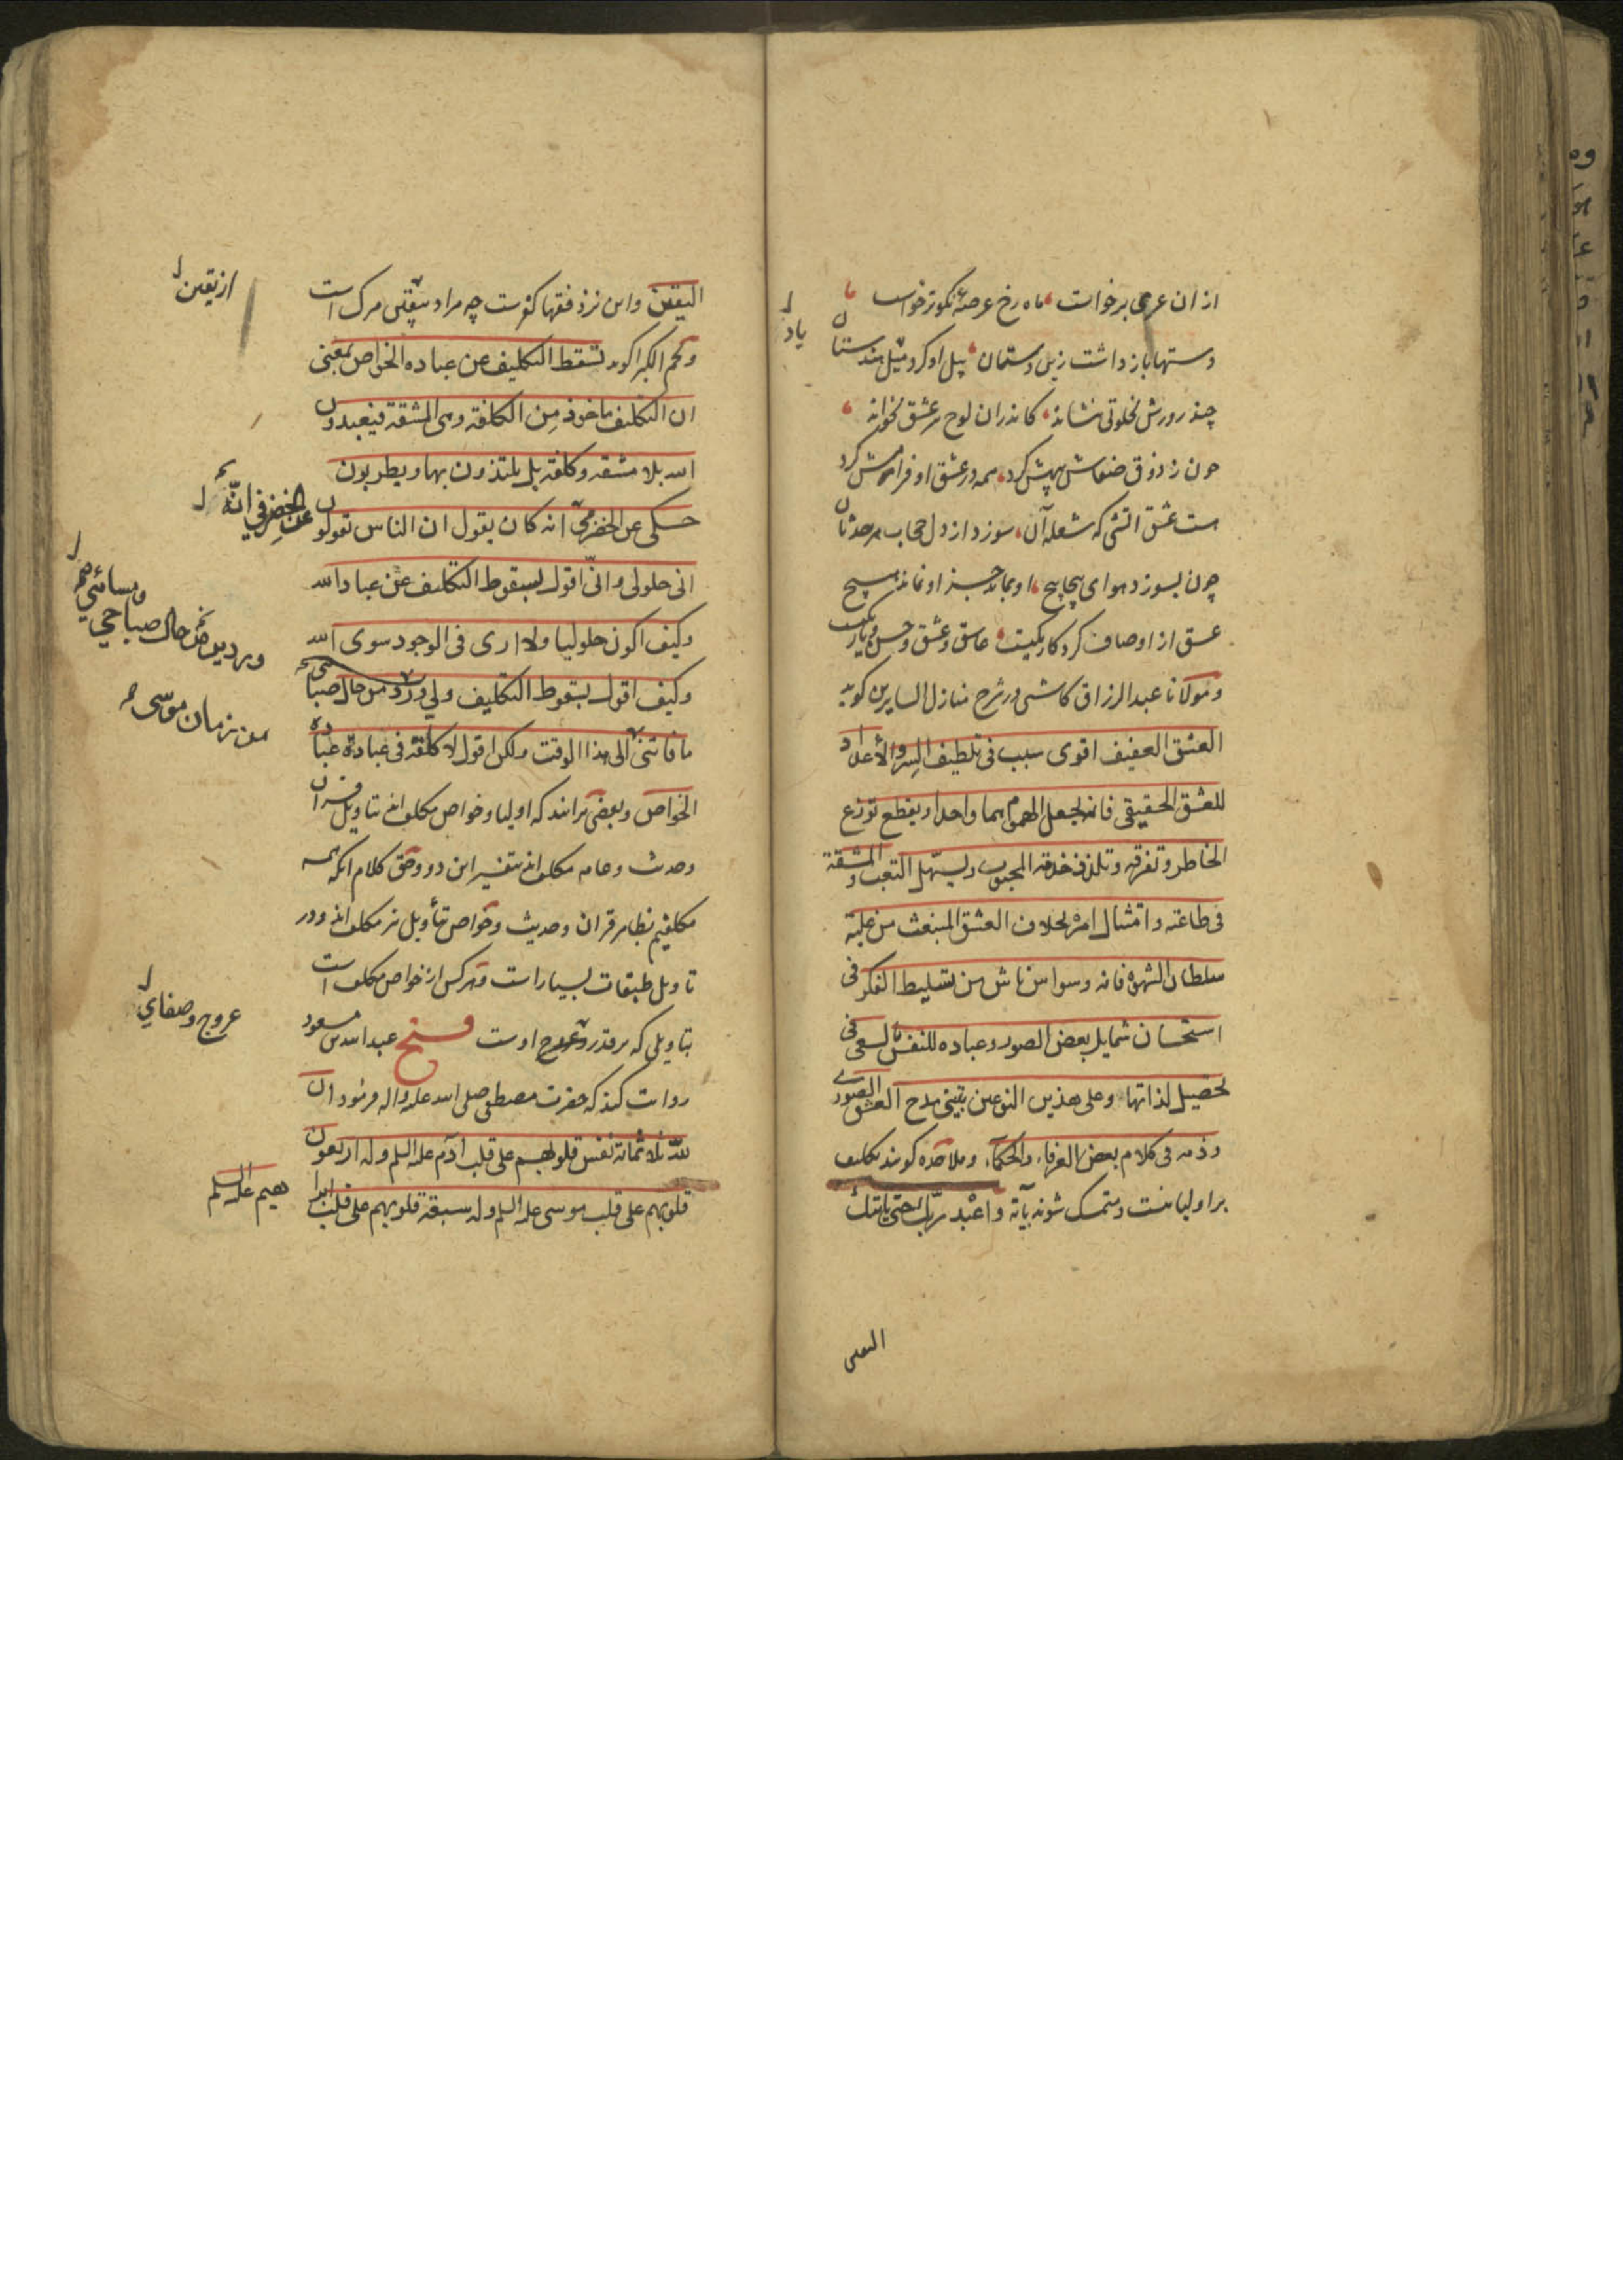 از ان عرصی برخواست ماه رخ عرصهٔ نکوتر خواست
دستها باز داشت زین دستان پیل او کرد میل هندستان
یاد
چند روزش بخلوتی بنشاند کاندران لوح سر عشق بخواند
چون ز ذوق صفاش بیهش کرد همه در عشق او فرامش کرد
هست عشق اتشی که شعله آن سوزد از دل حجاب هر حدثان
چون بسوزد هوای پیچاپیچ او بماند جز او نماند هیچ
عشق از اوصاف کردکار یکیست عاشق و عشق و حسن و یار یکیست
و مولانا عبد الرزاق کاشی در شرح منازل السایرین کوید
العشق العفیف اقوی سبب فی تلطیف السر والأعداد
للعشق الحقیقی فانه یجعل الهموم هما واحدا ویقطع توزع
الخاطر وتفرقه وتلذ فی خدمة المحبوب ویسهّل التعب والمشقة
فی طاعته وامتثال امره بخلاف العشق المنبعث من غلبة
سلطان الشهوة فانه وسواس ناش من تسلیط الفکر فی
استحسان شمایل بعض الصور وعباده للنفس بالسعی فی
تحصیل لذاتها وعلی هذین النوعین یبتنی مدح العشق الصوری
وذمه فی کلام بعض العرفاء والحکماء وملاحده کویند تکلیف
بر اولیا نیست ومتمسک شوند بآیة واعْبد ربّک حتی یاتیک
الیقین
الیقین واین نزد فقها کفرست چه مراد بیقین مرک است
از یقین
ونجم الکبرا کوید تسقط التکلیف عن عباده الخواص بمعنی
ان التکلیف ماخوذ مِن الکلفة وهی المشقة فیعبدون
الله بلا مشقة وکلفة بل یلتذون بها ویطربون
حکی عن الخضر انه کان یقول ان الناس تقولون
عن الخضر فی انّه
انی حلولی وانّی اقول بسقوط التکلیف عن عباد الله
وکیف اکون حلولیا ولا اری فی الوجود سوی الله
وکیف اقول بسقوط التکلیف ولی ورد من حال صبای
ومسائی
من حال صباحی
ما فاتنی الی هذا الوقت ولکن اقول لا کلفة فی عبادة عباده
من زمان موسی
الخواص وبعضی برانند که اولیا وخواص مکلف اند بتاویل قران
وحدیث وعامه مکلف اند بتفسیر این دو وحق کلام انکه همه
مکلفیم بظاهر قران وحدیث وخواص بتأویل نیز مکلف اند ودر
تاویل طبقات بسیار است وهر کس از خواص مکلف است
بتاویلی که بر قدر عروج اوست فتح عبد الله بن مسعود
عروج وصفای
روایت کند که حضرت مصطفی صلی الله علیه واله فرمود ان
لله ثلاثمائة نفس قلوبهم علی قلب آدم علیه السلم وله اربعون
قلوبهم علی قلب موسی علیه السلم وله سبعة قلوبهم علی قلب ابرا
هیم علیه السلم